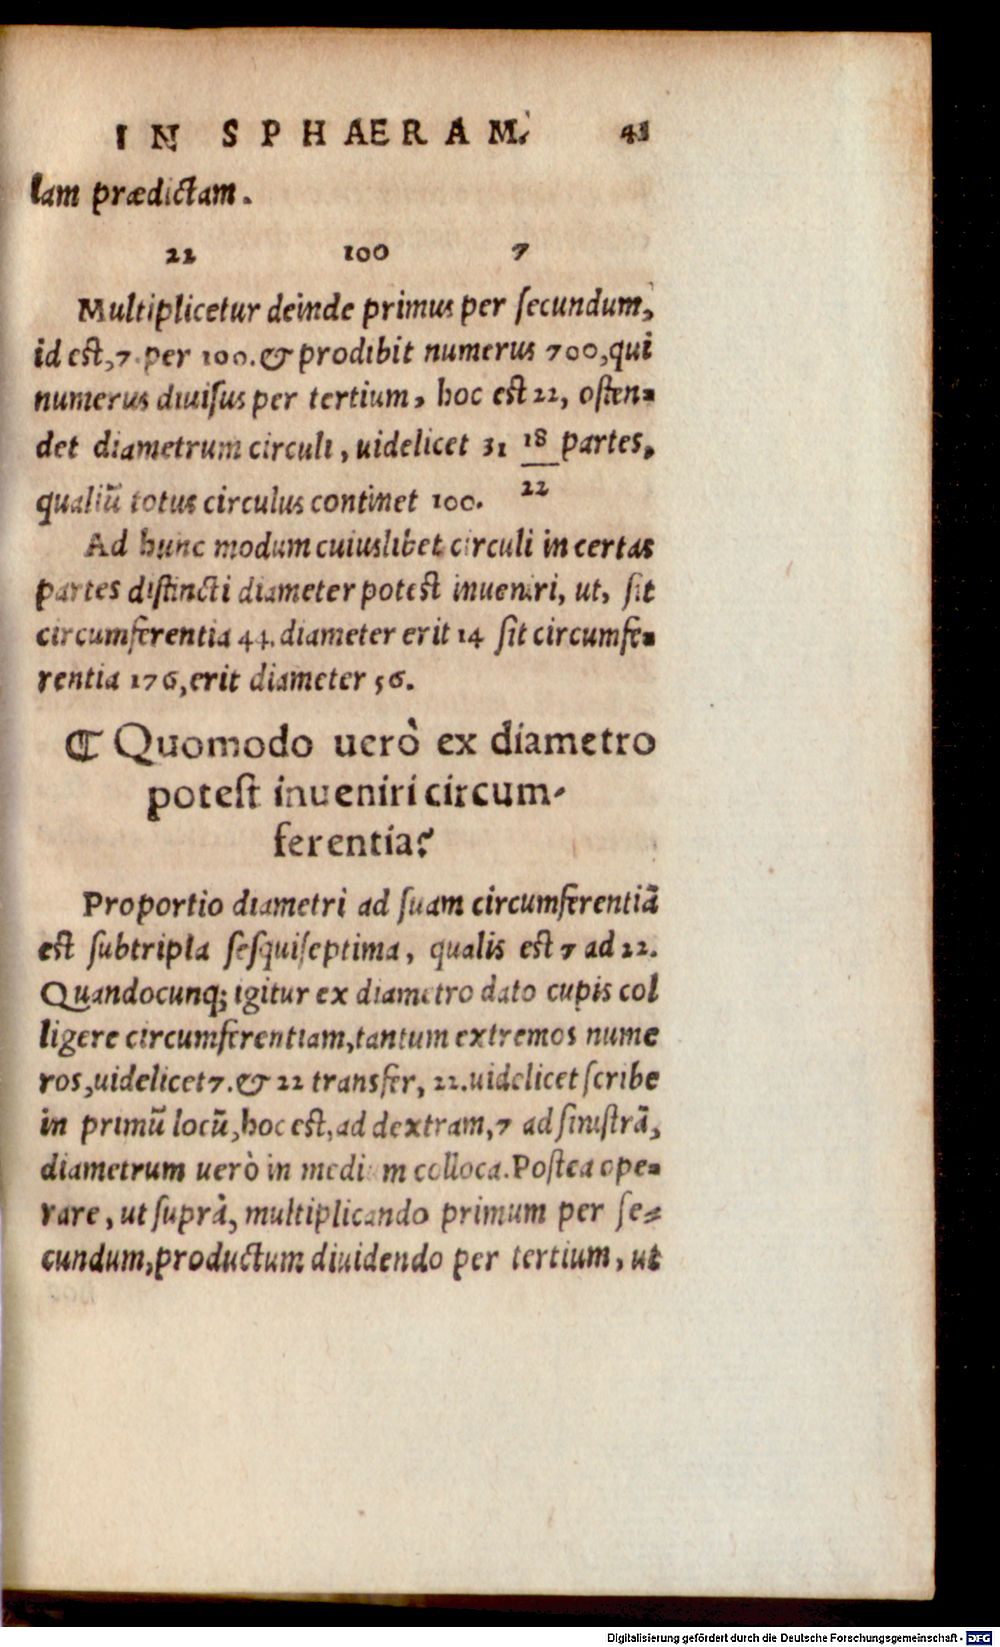 IN SPHAERAM. 41
lam prædictam.
22 100 7
Multiplicetur deinde primus per ſecundum,
id est, 7. per 100. & prodibit numerus 700, qui
numerus diuiſus per tertium, hoc est 22, oſten-
det diametrum circuli, uidelicet 31 18/22 partes,
qualiū totus circulus continet 100.
Ad hunc modum cuiuslibet circuli in certas
partes diſtincti diameter potest inueniri, ut, ſit
circumferentia 44. diameter erit 14 ſit circumfe-
rentia 176, erit diameter 56.
¶ Quomodo uerò ex diametro
poteſt inueniri circum-
ferentia?
Proportio diametri ad ſuam circumferentiā
est ſubtripla ſeſquiſeptima, qualis est 7 ad 22.
Quandocunq; igitur ex diametro dato cupis col
ligere circumferentiam, tantum extremos nume
ros, uidelicet 7. & 22 transfer, 22. uidelicet ſcribe
in primū locū, hoc est, ad dextram, 7 ad ſiniſtrā,
diametrum uerò in medium colloca. Poſtea ope-
rare, ut ſuprà, multiplicando primum per ſe-
cundum, productum diuidendo per tertium, ut
Digitalisierung gefördert durch die Deutsche Forschungsgemeinschaft - DFG